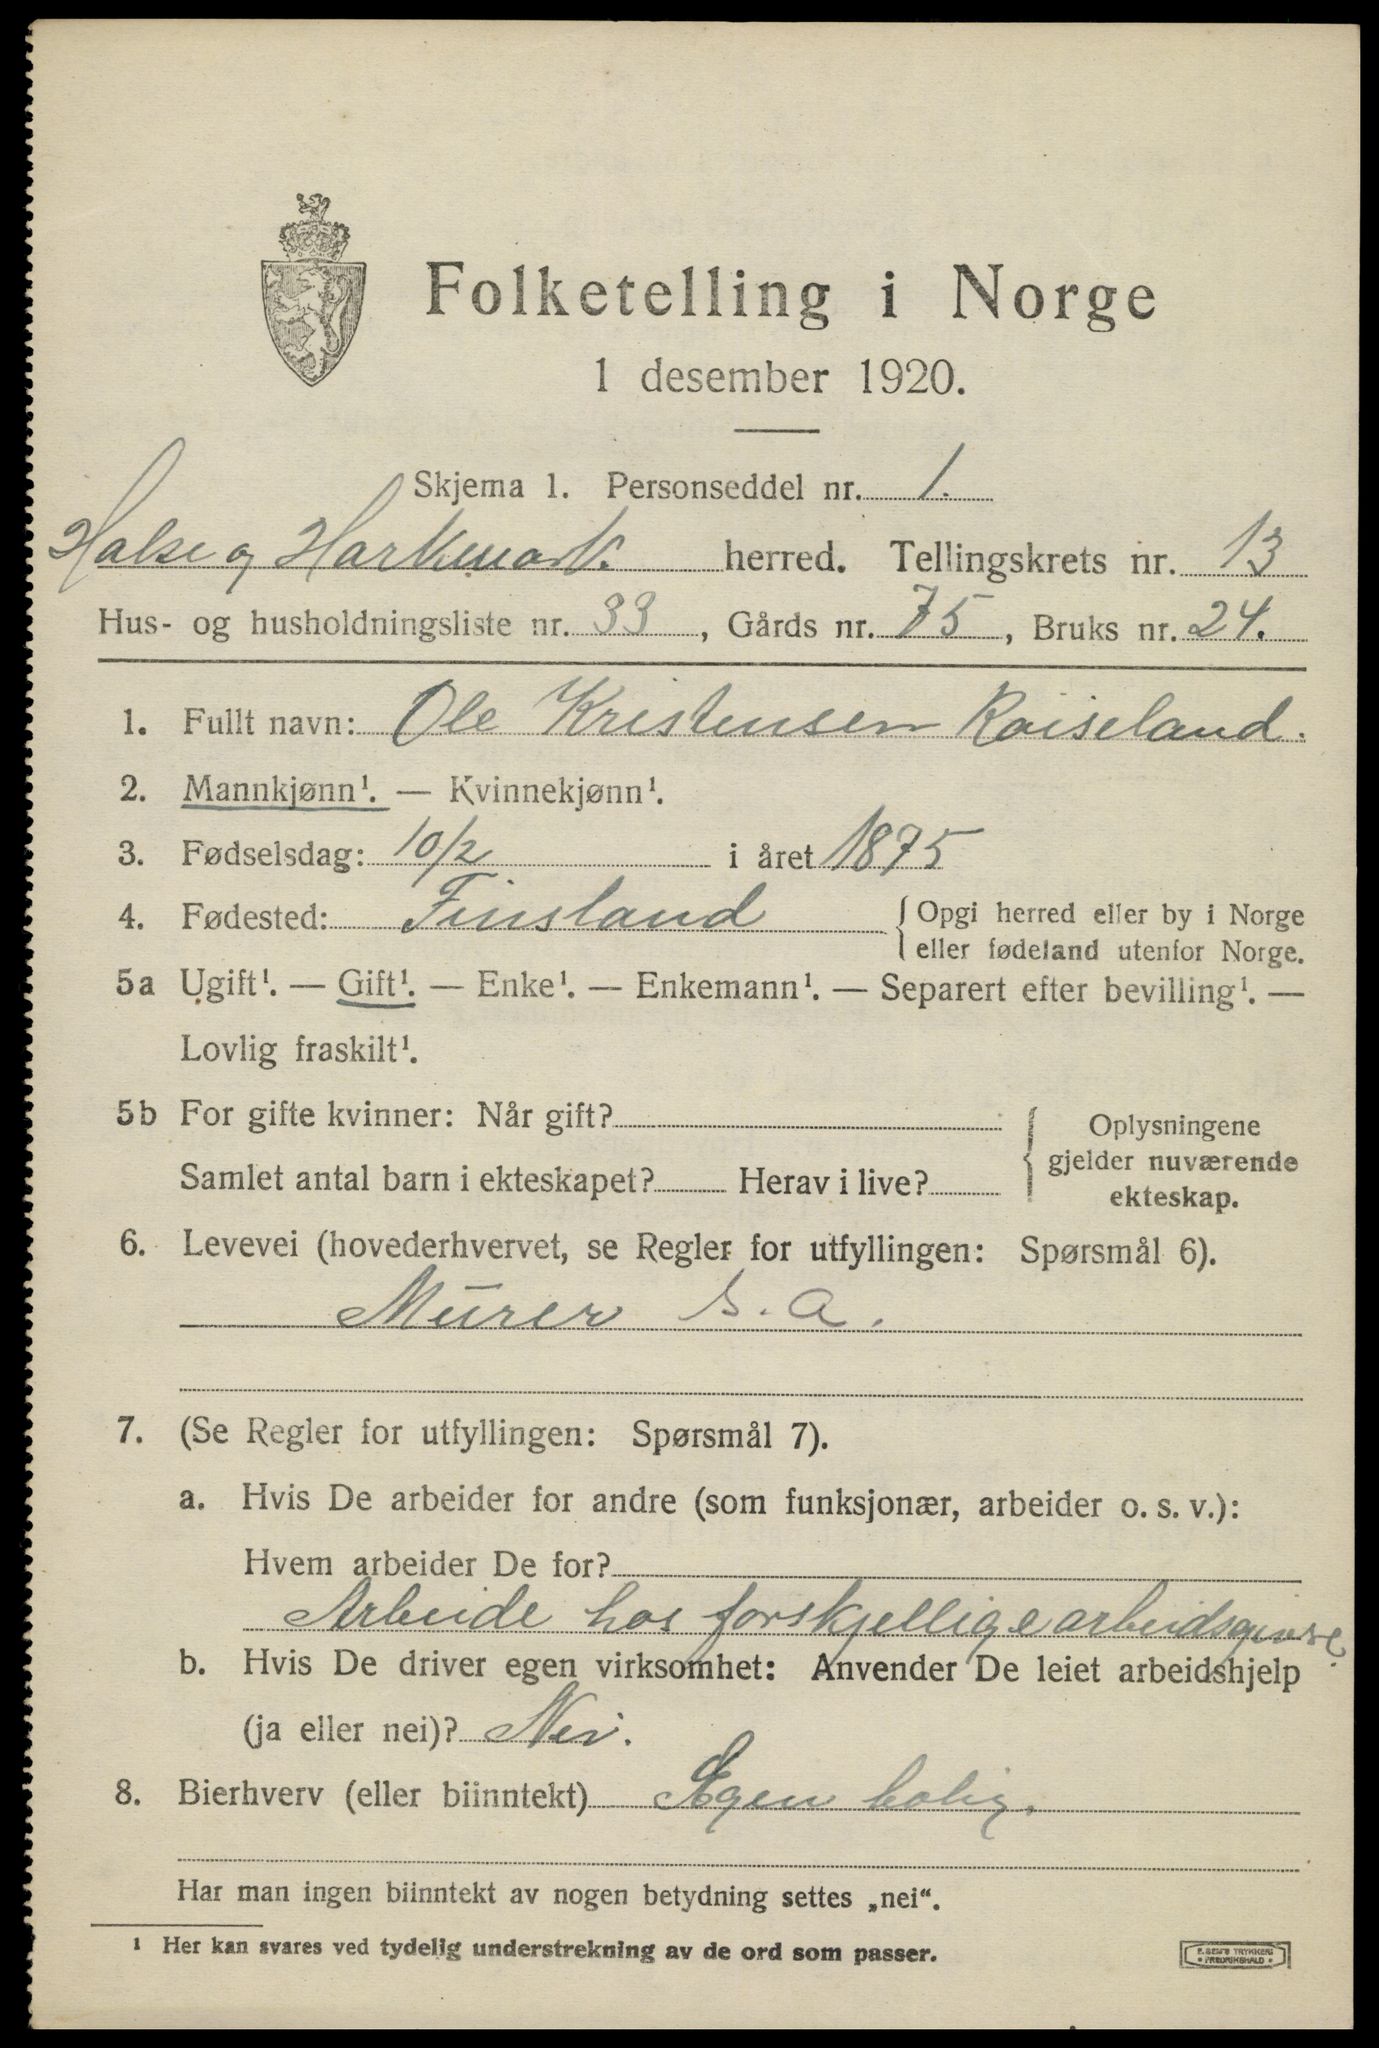 Folketelling i Norge
1 desember 1920.
Skjema 1. Personseddel nr. 1.
Halse og Harkmark. herred. Tellingskrets nr. 13
Hus- og husholdningsliste nr. 33, Gårds nr. 75, Bruks nr. 24.
1. Fullt navn: Ole Kristensen Røiseland.
2. Mannkjønn¹. — Kvinnekjønn¹.
3. Fødselsdag: 10/2 i året 1875
4. Fødested: Finsland { Opgi herred eller by i Norge
eller fødeland utenfor Norge.
5a Ugift¹. — Gift¹. — Enke¹. — Enkemann¹. — Separert efter bevilling¹. —
Lovlig fraskilt¹.
5b For gifte kvinner: Når gift?
Samlet antal barn i ekteskapet? Herav i live?
{ Oplysningene
gjelder nuværende
ekteskap.
6. Levevei (hovederhvervet, se Regler for utfyllingen: Spørsmål 6).
Murer s. a.
7. (Se Regler for utfyllingen: Spørsmål 7).
a. Hvis De arbeider for andre (som funksjonær, arbeider o. s. v.):
Hvem arbeider De for?
Arbeide hos forskjellige arbeidsgivere.
b. Hvis De driver egen virksomhet: Anvender De leiet arbeidshjelp
(ja eller nei)? Nei.
8. Bierhverv (eller biinntekt) Egen bolig.
Har man ingen biinntekt av nogen betydning settes „nei“.
¹ Her kan svares ved tydelig understrekning av de ord som passer.
E. SEM'S TRYKKERI
• FREDRIKSHALD •